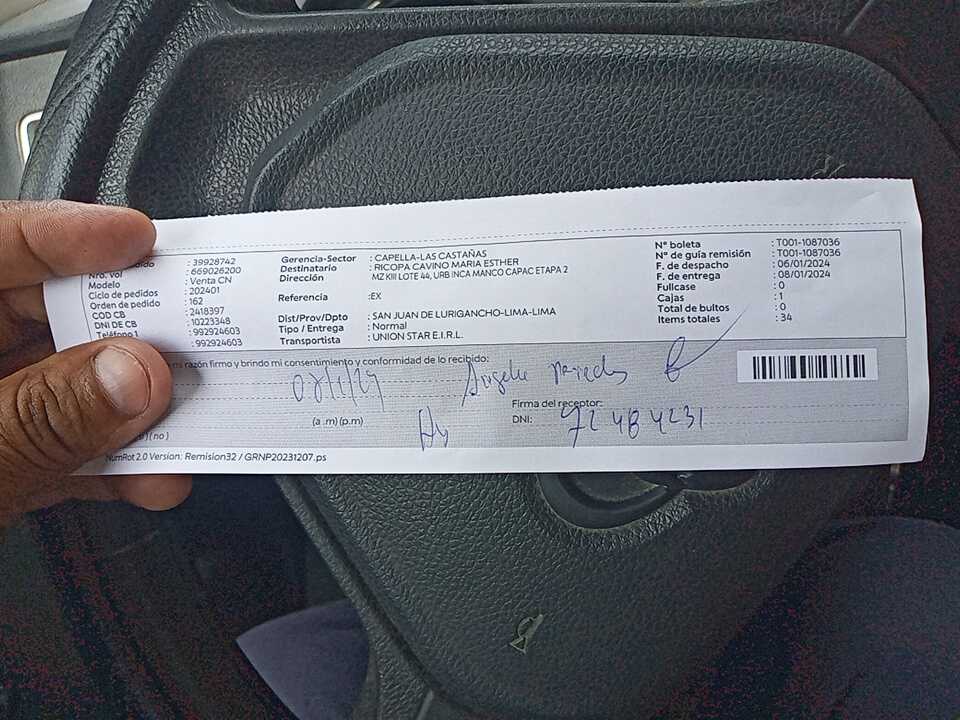 ido : 39928742
Nro. Vol : 669026200
Modelo : Venta CN
Ciclo de pedidos : 202401
Orden de pedido : 162
COD CB : 2418397
DNI DE CB : 10223348
Teléfono 1 : 992924603
: 992924603
Gerencia-Sector : CAPELLA-LAS CASTAÑAS
Destinatario : RICOPA CAVINO MARIA ESTHER
Dirección : MZ KIII LOTE 44, URB INCA MANCO CAPAC ETAPA 2
Referencia :EX
Dist/Prov/Dpto : SAN JUAN DE LURIGANCHO-LIMA-LIMA
Tipo / Entrega : Normal
Transportista : UNION STAR E.I.R.L.
N° boleta : T001-1087036
N° de guía remisión : T001-1087036
F. de despacho : 06/01/2024
F. de entrega : 08/01/2024
Fullcase : 0
Cajas : 1
Total de bultos : 0
Items totales : 34
razón firmo y brindo mi consentimiento y conformidad de lo recibido:
(a .m) (p.m)
Firma del receptor:
DNI: 72484231
) ( no )
NumRot 2.0 Version: Remision32 / GRNP20231207.ps